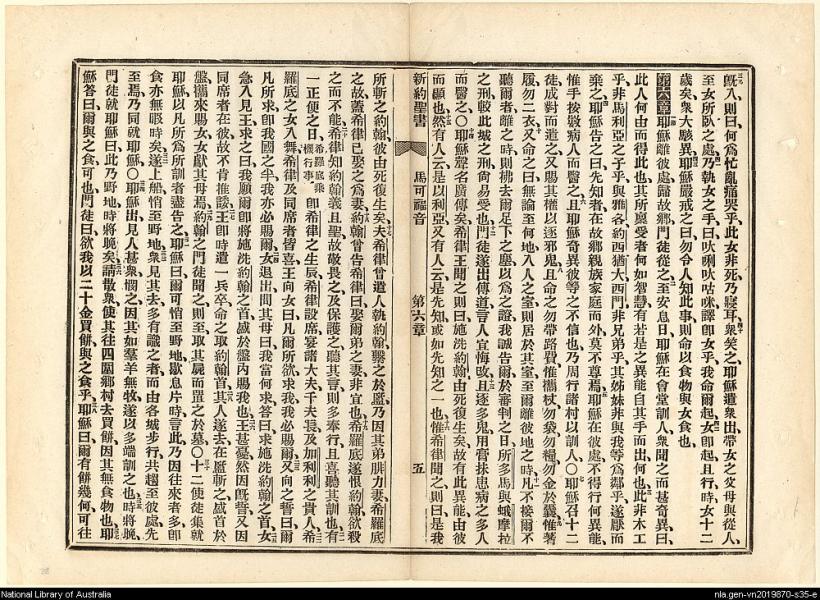 既入則曰何爲忙亂痛哭乎此女非死乃寢耳衆笑之耶穌遣衆出帶女之父母與從人
至女所臥之處乃執女之手曰呔唎呔咕咪譯卽女乎我命爾起女卽起且行時女十二
歲矣衆大駭異耶穌嚴戒之曰勿令人知此事則命以食物與女食也
第六章耶穌離彼處歸故鄉門徒從之至安息日耶穌在會堂訓人衆聞之而甚奇異曰
此人何由而得此也其所稟受者何如智慧有若是之異能自其手而出何也此非木工
乎非馬利亞之子乎與雅各約西猶大西門非兄弟乎其姊妹非與我等爲鄰乎遂厭而
棄之耶穌告之曰先知者在故鄉親族家庭而外莫不尊焉耶穌在彼處不得行何異能
惟手按數病人而醫之且耶穌奇異彼等之不信也乃周行諸村以訓人〇耶穌召十二
徒成對而遣之又賜其權以逐邪鬼且命之勿帶路費惟攜杖勿袋勿糧勿金於囊惟著
履勿二衣又命之曰無論至何地入人之室則居於其室至爾離彼地之時凡不接爾不
聽爾者離之時則拂去爾足下之塵以爲之證我誠告爾於審判之日所多馬與蛾摩拉
之刑較此城之刑尙易受也門徒遂出傳道言人宜悔改且逐多鬼用膏抹患病之多人
而醫之〇耶穌聲名廣傳矣希律王聞之則曰施洗約翰由死復生矣故有此異能由彼
而顯也然有人云是以利亞又有人云是先知或如先知之一也惟希律聞之則曰是我
新約聖書 馬可福音 第六章 五
所斬之約翰彼由死復生矣夫希律曾遣人執約翰繫之於監乃因其弟腓力妻希羅底
之故蓋希律已娶之爲妻約翰曾告希律曰娶爾弟之妻非宜也希羅底遂恨約翰欲殺
之而不能希律知約翰義且聖故敬畏之及保護之聽其言則多奉行且喜聽其訓也有
一正便之日希羅底乘機行事卽希律之生辰希律設席宴諸大夫千夫長及加利利之貴人希
羅底之女入舞希律及同席者皆喜王向女曰凡爾所欲求我我必賜爾又向之誓曰爾
凡所求卽我國之半我亦必賜爾女退出問其母曰我當何求答曰求施洗約翰之首女
急入見王求之曰我願爾卽將施洗約翰之首盛於盤內賜我也王甚憂然因旣誓又因
同席者在彼故不肯推諉王卽時遣一兵卒命之取約翰首其人遂去在監斬之盛首於
盤攜來賜女女獻其母焉約翰之門徒聞之則至取其屍而置之於墓〇十二使徒集就
耶穌以凡所爲所訓者盡告之耶穌曰爾可悄至野地歇息片時言此乃因往來者多卽
食亦無暇時矣遂上船悄至野地衆見其去多有識之者而由各城步行共趨至彼處先
至焉乃同就耶穌〇耶穌出見人甚衆憫之因其如羣羊無牧遂以多端訓之也時將晚
門徒就耶穌曰此乃野地時將晚矣請散衆使其往四圍鄉村去買餅因其無食物也耶
穌答曰爾與之食可也門徒曰欲我以二十金買餅與之食乎耶穌曰爾有餅幾何可往
National Library of Australia
nla.gen-vn2019870-s35-e